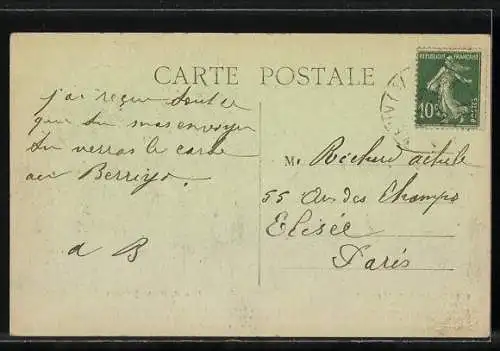 CARTE POSTALE
REPUBLIQUE FRANÇAISE
10c
POSTES
j'ai reçu tout ce
que tu mas envoyer
tu verras le carde
au Berriyo.
a B
M. Richard
55 Av des Champs
Elisée
Paris